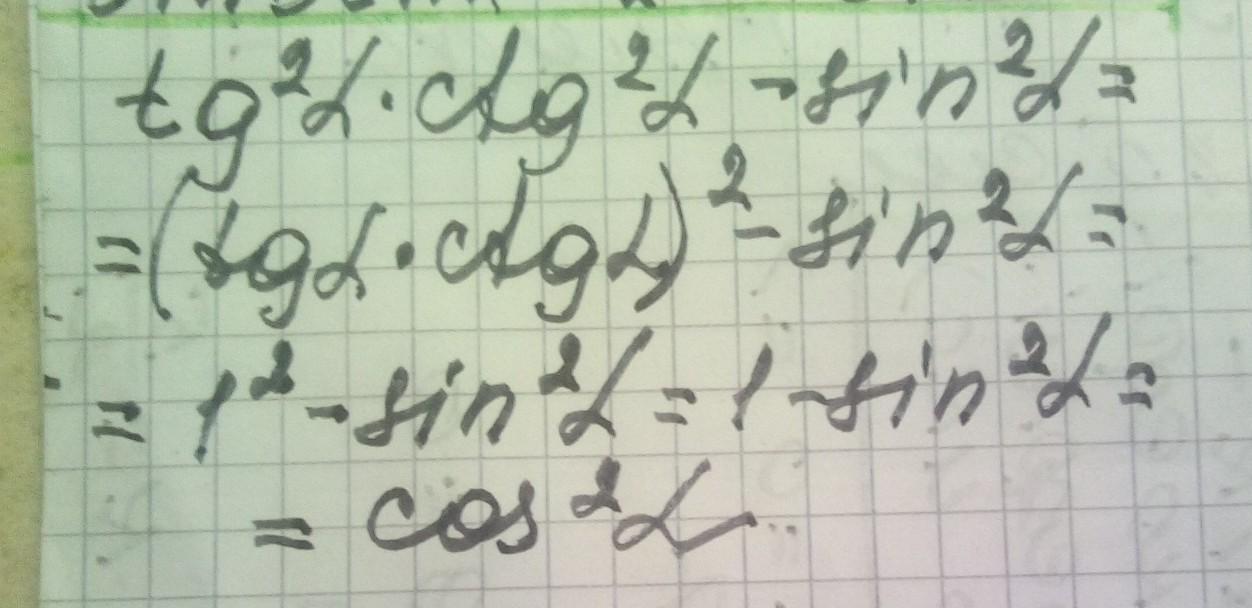 tg²α · ctg²α - sin²α =
= (tgα · ctgα)² - sin²α =
= 1² - sin²α = 1 - sin²α =
= cos²α